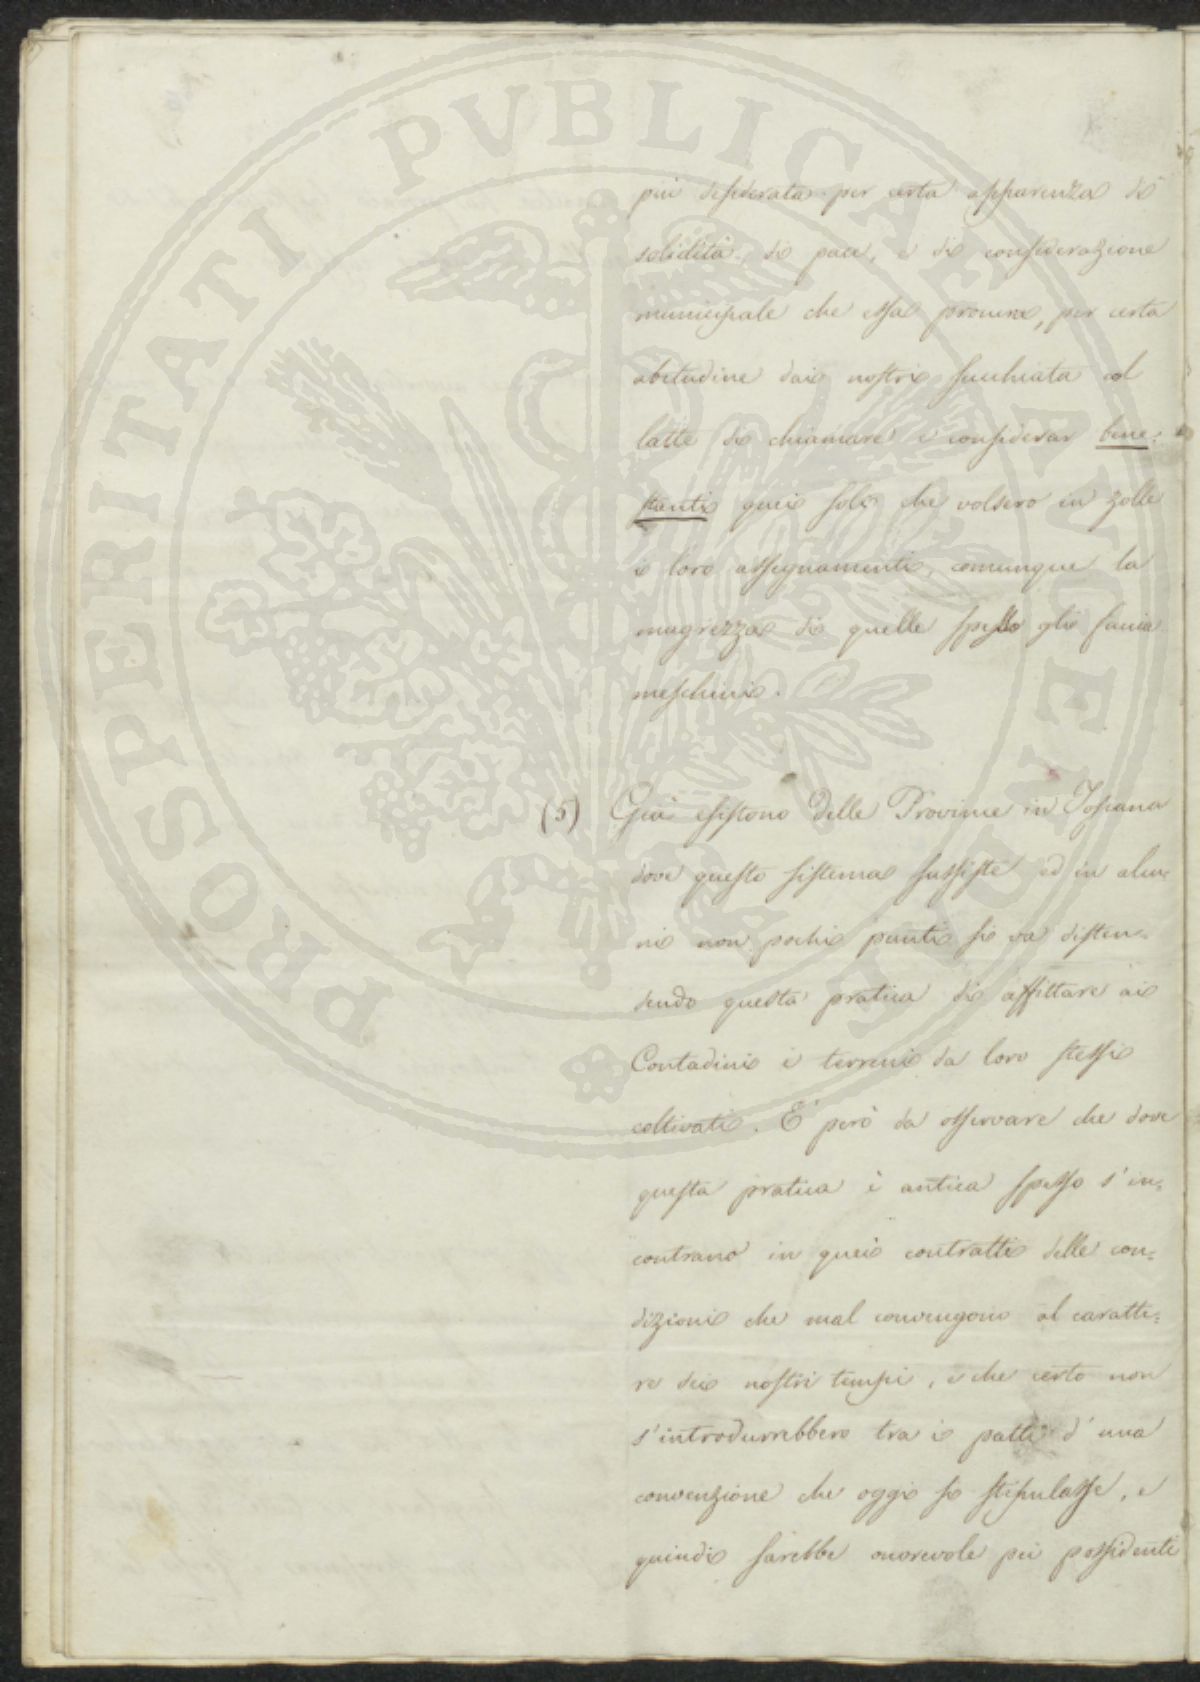 PROSPERITATI PUBLICAE AUGENDAE
più desiderata per certa apparenza di
solidità, di pace, e di considerazione
municipale che essa procura, per certa
abitudine dai nostri succhiata col
latte di chiamare e considerar bene-
stanti quei soli che volsero in zolle
i loro assegnamenti, comunque la
magrezza di quelle spesso gli faccia
meschini.
(5) Già esistono delle Provincie in Toscana
dove questo sistema sussiste ed in alcu-
ni non pochi punti si va disten-
dendo questa pratica di affittare ai
Contadini i terreni da loro stessi
coltivati. E' però da osservare che dove
questa pratica è antica spesso s'in-
contrano in quei contratti delle con-
dizioni che mal convengono al caratte-
re dei nostri tempi, e che certo non
s'introdurrebbero tra i patti d'una
convenzione che oggi si stipulasse, e
quindi sarebbe onorevole pei possidenti